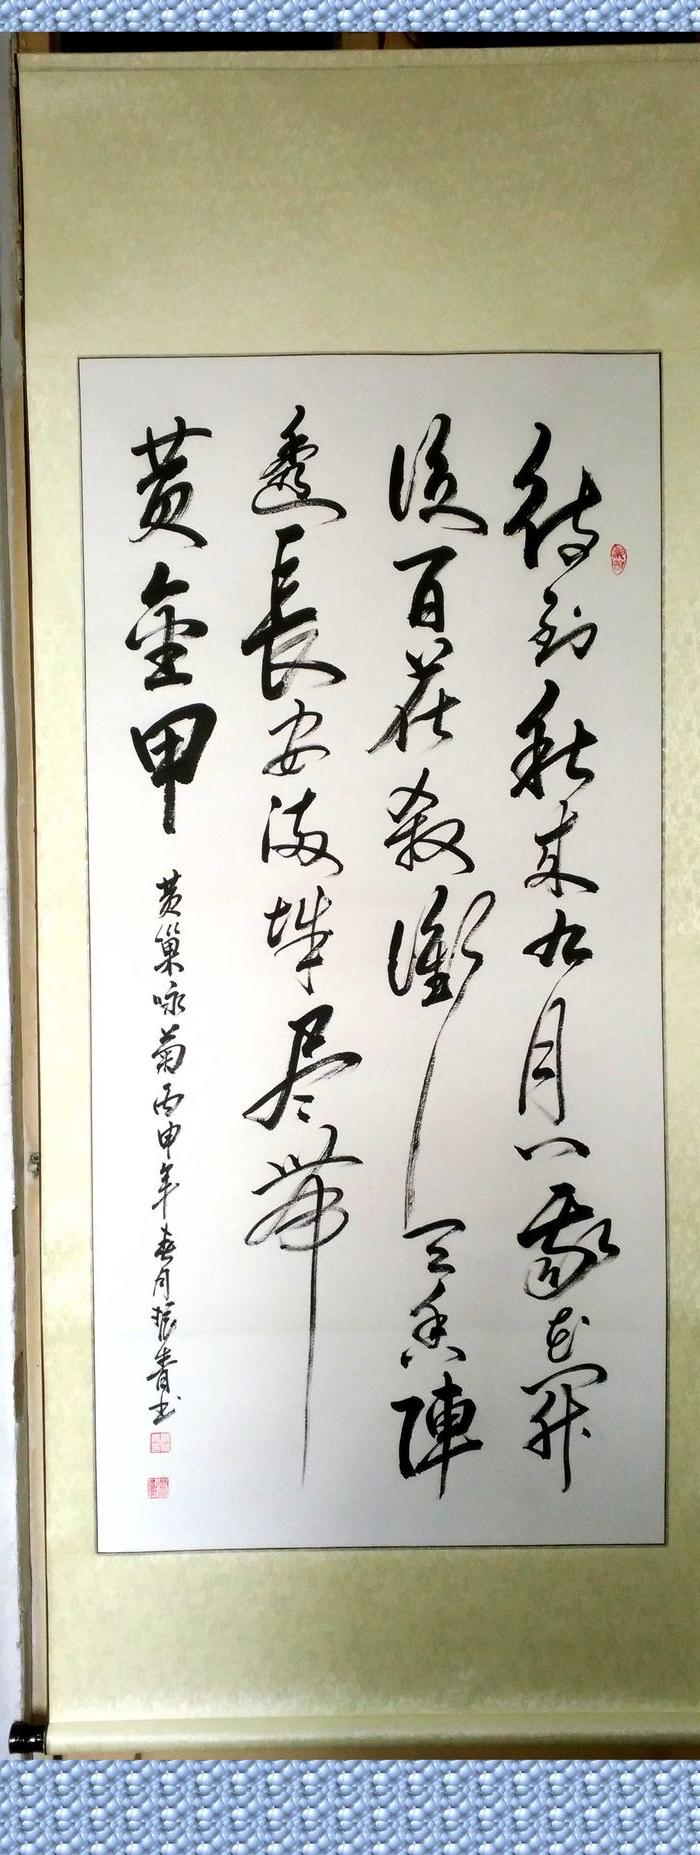 待到秋来九月八我花開
後百花殺衝天香陣
透長安满城尽帶
黄金甲
黄巢咏菊丙申年春月振青书